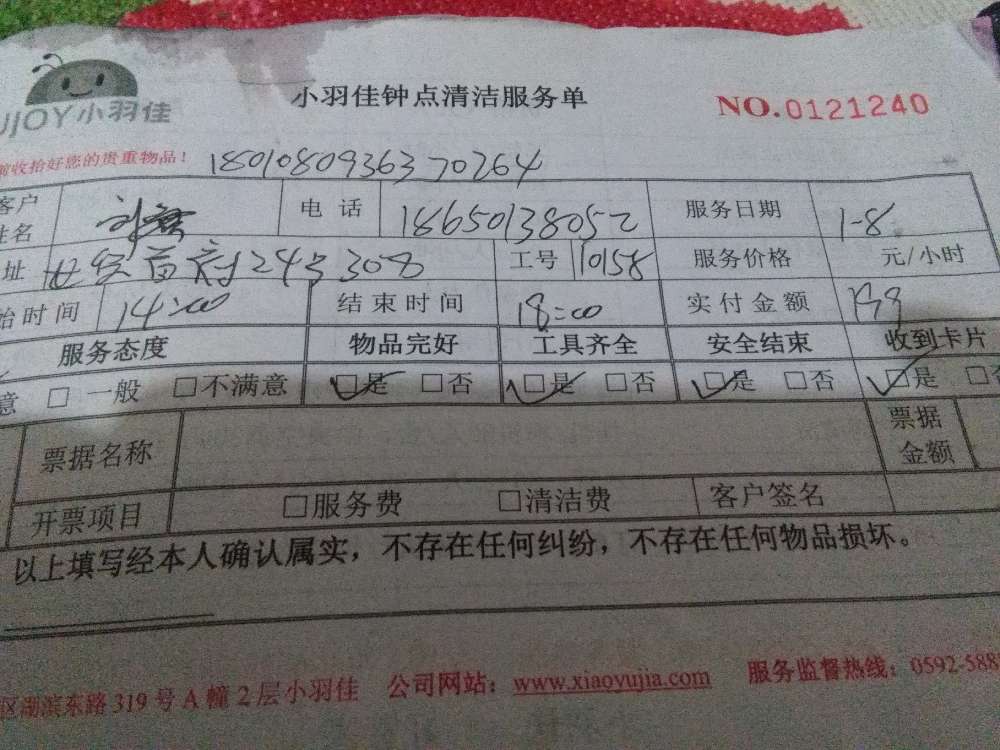 UJOY小羽佳
小羽佳钟点清洁服务单
NO.0121240
前收拾好您的贵重物品！
18010809363 70264
客户姓名 电话 18650138052 服务日期 1-8
址 243 308 工号 10158 服务价格 元/小时
始时间 14:00 结束时间 18:00 实付金额 199
服务态度 物品完好 工具齐全 安全结束 收到卡片
意 □ 一般 □不满意 □是 □否 □是 □否 □是 □否 □是 □否
票据名称 票据金额
开票项目 □服务费 □清洁费 客户签名
以上填写经本人确认属实，不存在任何纠纷，不存在任何物品损坏。
区湖滨东路 319 号 A 幢 2 层小羽佳 公司网站：www.xiaoyujia.com 服务监督热线：0592-588